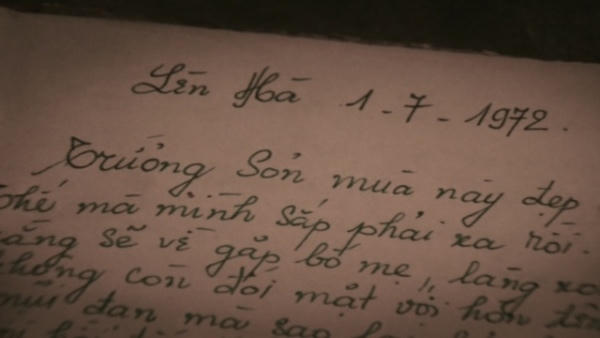 Lên Hà 1-7-1972.
Trường Sơn mùa này đẹp
thế mà mình sắp phải xa rồi.
rằng sẽ về gặp bố mẹ, làng
không còn đối mặt với hòn
mũi đạn mà sao